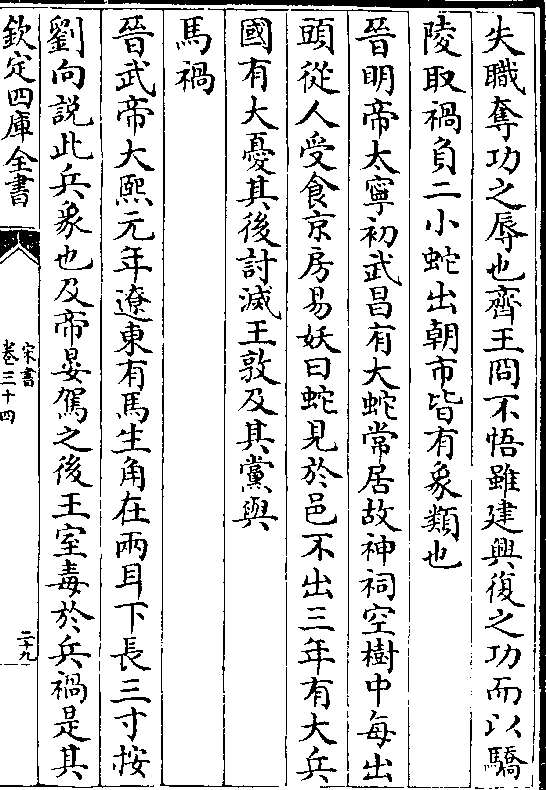 失職奪功之辱也齊王冏不悟雖建興復之功而以驕
陵取禍負二小蛇出朝市皆有象類也
晉明帝太寧初武昌有大蛇常居故神祠空樹中每出
頭從人受食京房易妖曰蛇見於邑不出三年有大兵
國有大憂其後討滅王敦及其黨與
馬禍
晉武帝大熙元年遼東有馬生角在兩耳下長三寸按
劉向說此兵象也及帝晏駕之後王室毒於兵禍是其
欽定四庫全書
宋書
卷三十四
二十九